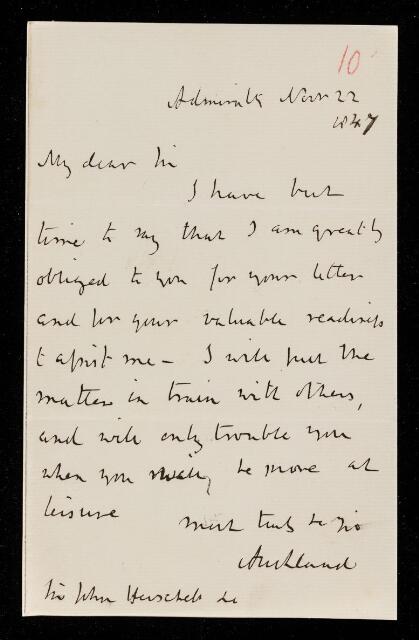 10
Admiralty Novr 22
1847
My dear Sir
I have but
time to say that I am greatly
obliged to you for your letter
and for your valuable readiness
to assist me - I will put the
matter in train with others,
and will only trouble you
when you may be more at
leisure
most truly yrs
Auckland
Sir John Herschel &c